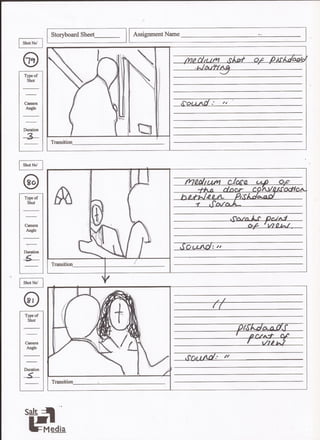 Storyboard Sheet______ Assignment Name
Shot No'
79
Type of
Shot
Camera
Angle
Duration
3
Transition
medium shot of Pishdaad
waiting
sound: "
Shot No'
80
Type of
Shot
Camera
Angle
Duration
5
Transition
medium close up of
the door conversation
between Pishdaad
+ Sarah
Sarahs point
of view.
sound: "
Shot No'
81
Type of
Shot
Camera
Angle
Duration
5
Transition
"
Pishdaads
point of
view
sound: "
Salt
Media